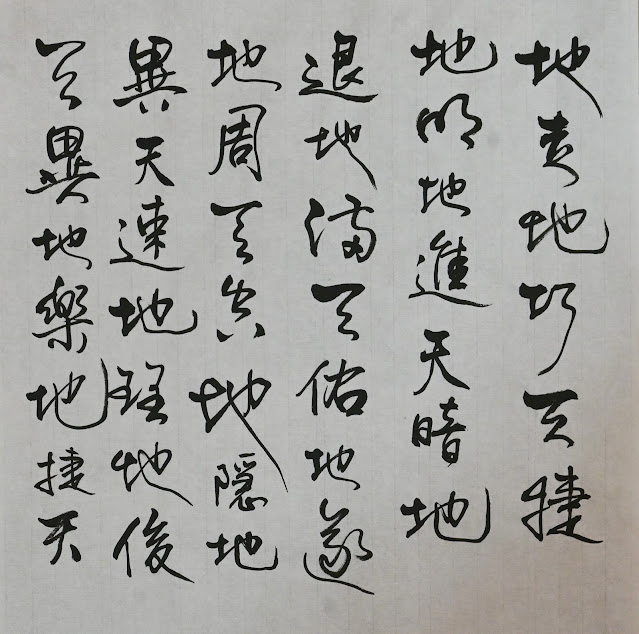 地走地巧天捷
地明地進天暗地
退地滿天佑地遂
地周天空地隱地
異天速地理地俊
天異地樂地捷天